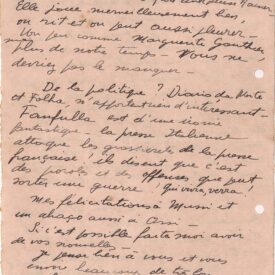 Elle joue merveilleusement bien
on rit et on peut aussi pleurer -
Un peu comme Marguerite Gauthier,
Plus de notre temps - Vous ne
devriez pas le manquer -
De la politique ? Diario da Noite
et Folha, n'apportent rien d'interessant -
Fanfulla est d'une ironie
fantastique. la presse Italienne
attaque les grossieretés de la presse
française ! ils disent que c'est
des paroles et des offenses que peut
sortir une guerre ! Qui vivra, verra !
Mes felicitations à Mussi et
un abaço aussi a
Si c'est possible faites moi avoir
de vos nouvelles -
Je pense bien à vous et vous
beaucoup de